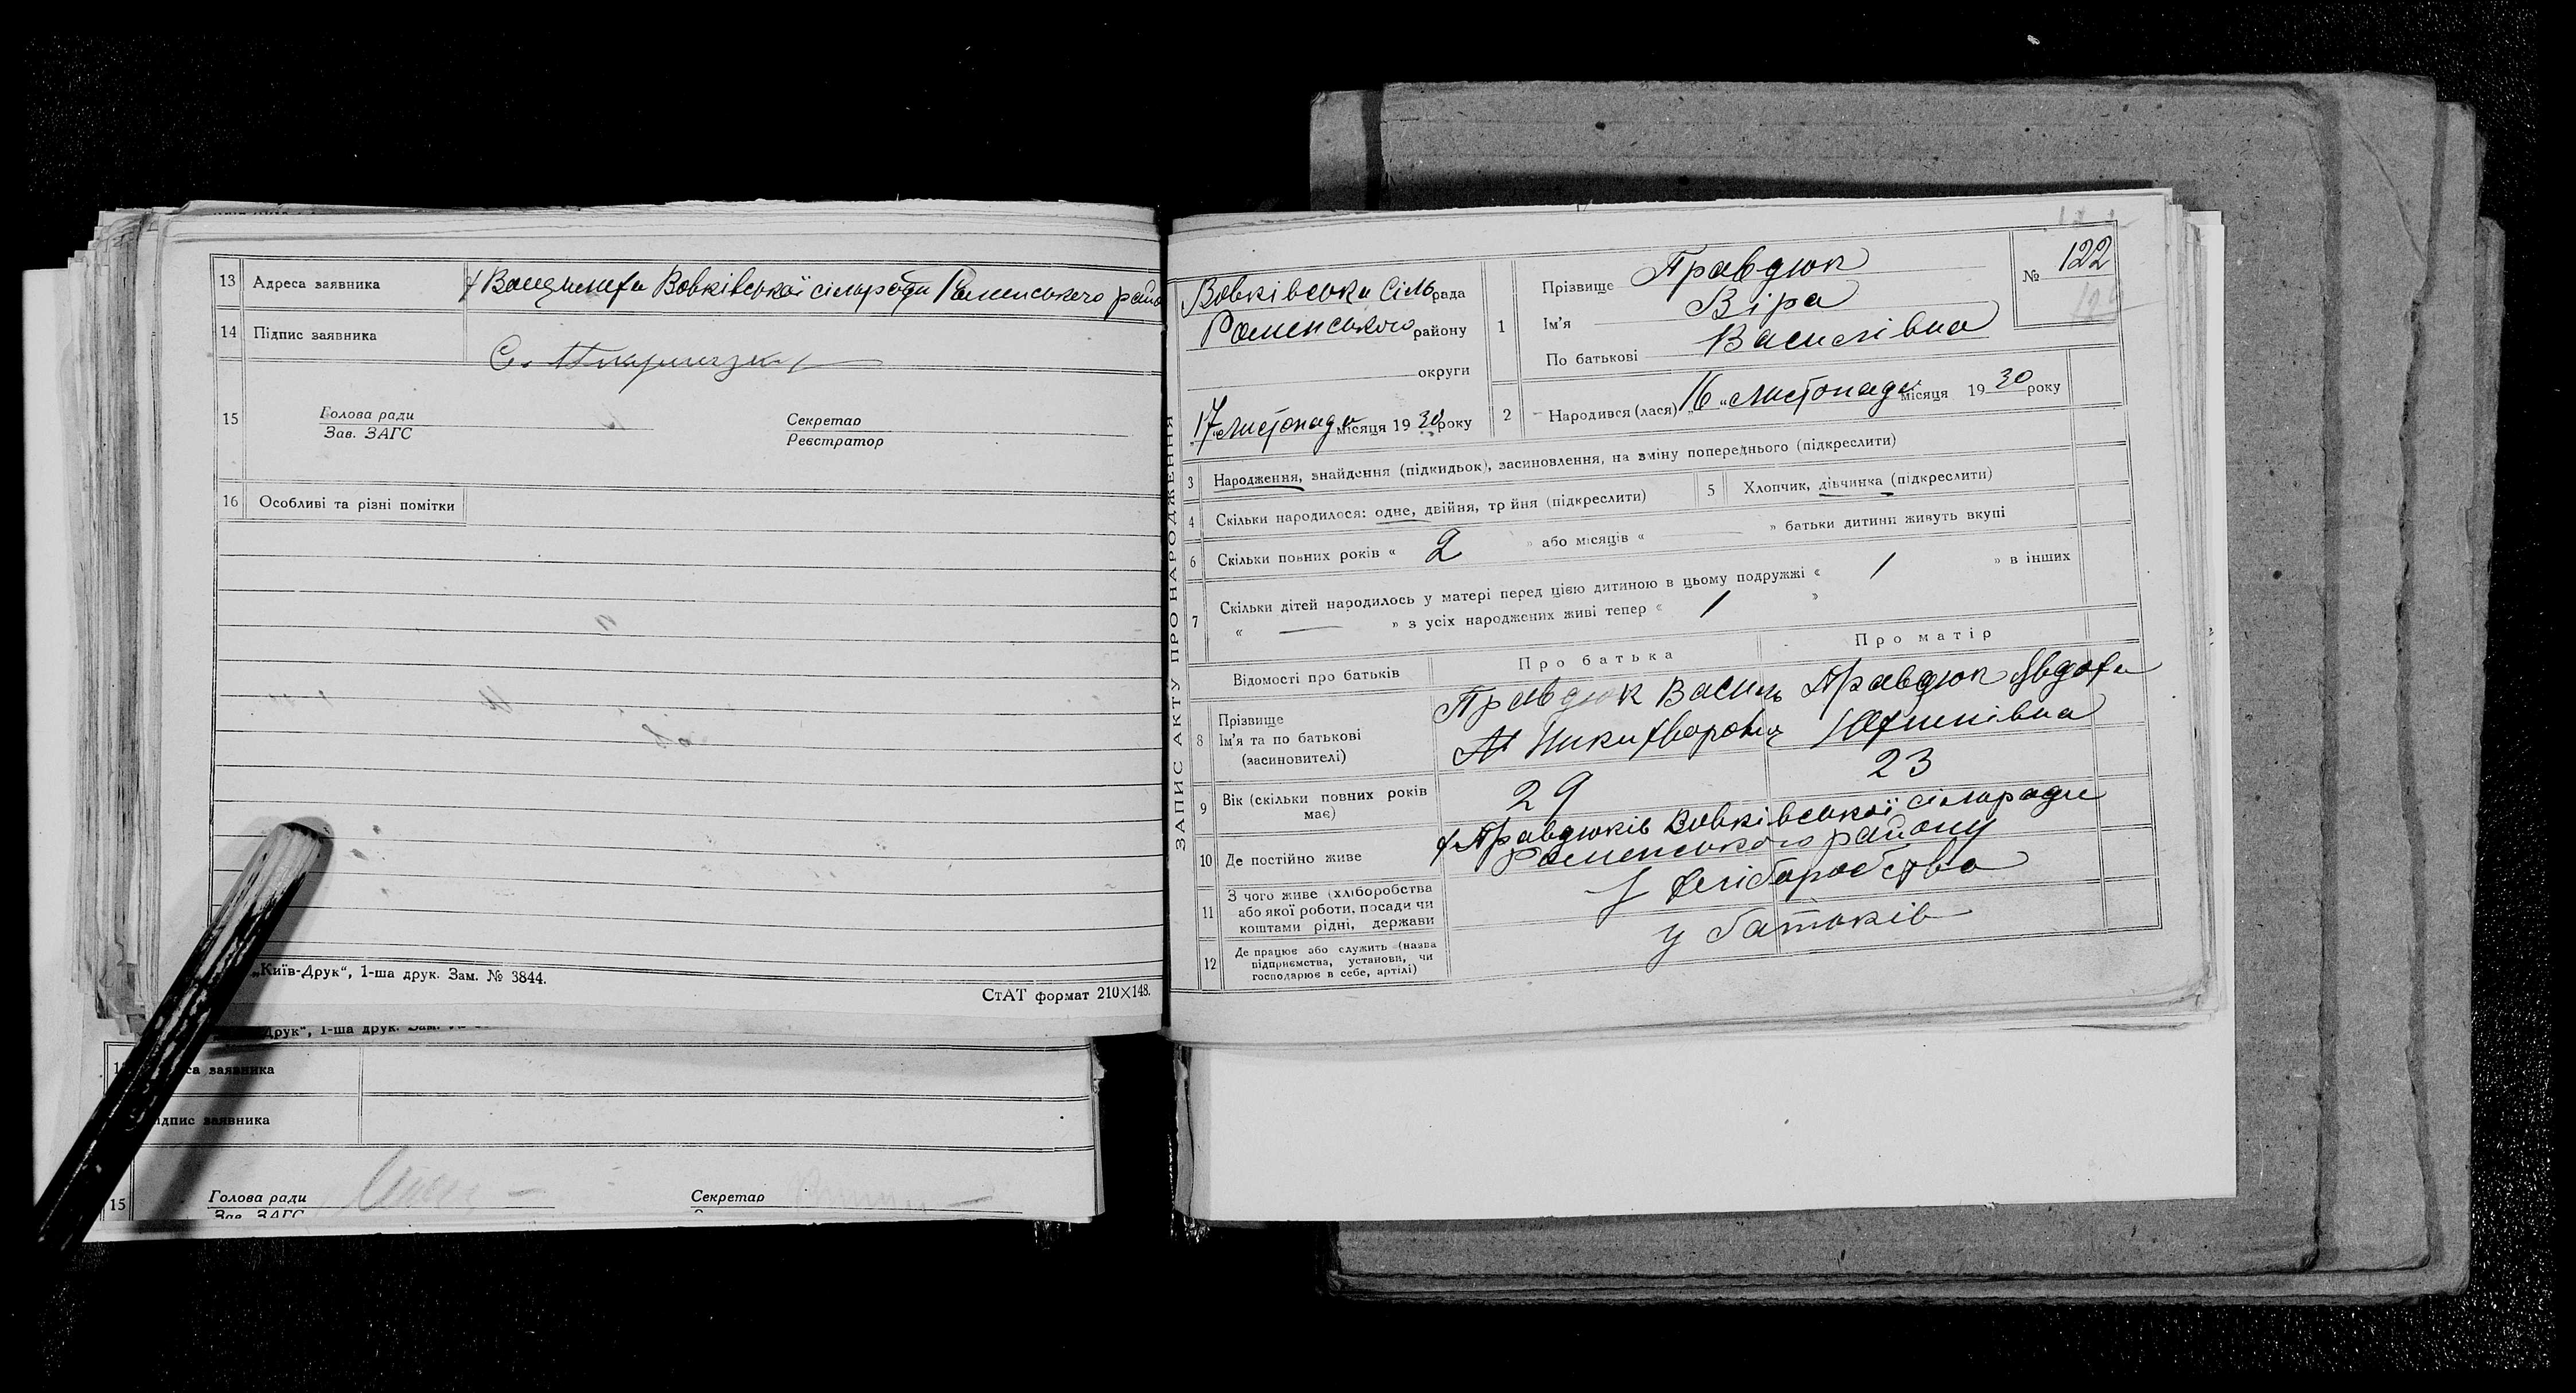 13 Адреса заявника Вовківської сільради Роменського райо
14 Підпис заявника
15 Голова ради
Зав. ЗАГС
Секретар
Реєстратор
16 Особливі та різні помітки
„Київ-Друк“, 1-ша друк. Зам. № 3844.
СтАТ формат 210×148.
Друк“, 1-ша друк. Зам.
са заявника
ідпис заявника
15 Голова ради
Зав. ЗАГС
Секретар
ЗАПИС АКТУ ПРО НАРОДЖЕННЯ
Вовківська Сільрада
Роменського району
округи
17 листопада місяця 1930 року
1 Прізвище Правдюк
Ім'я Віра
По батькові Василівна
№ 122
2 Народився (лася) „16“ листопада місяця 1930 року
3 Народження, знайдення (підкидьок), засиновлення, на зміну попереднього (підкреслити)
4 Скільки народилося: одне, двійня, трійня (підкреслити)
5 Хлопчик, дівчинка (підкреслити)
6 Скільки повних років « 2 » або місяців « — » батьки дитини живуть вкупі
7 Скільки дітей народилось у матері перед цією дитиною в цьому подружжі « 1 » в інших
« — » з усіх народжених живі тепер « 1 »
Відомості про батьків
Про батька
Про матір
8 Прізвище
Ім'я та по батькові
(засиновителі)
Правдюк Василь
Никифорович
Правдюк Явдоха
9 Вік (скільки повних років має)
29
23
10 Де постійно живе
х Правдюків Вовківської сільради
Роменського району
11 З чого живе (хліборобства
або якої роботи, посади чи
коштами рідні, держави
З хліборобства
12 Де працює або служить (назва
відприємства, установи, чи
господарює в себе, артілі)
у батьків